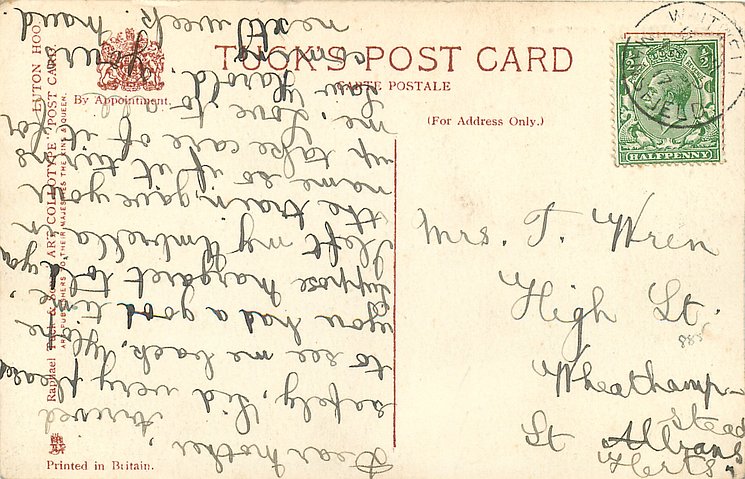 TUCK'S POST CARD
CARTE POSTALE
By Appointment.
(For Address Only.)
HALFPENNY
LUTON HOO.
Raphael Tuck & Sons' "ART COLLOTYPE" POST CARD
ART PUBLISHERS TO THEIR MAJESTIES THE KING & QUEEN.
Printed in Britain.
Dear Mother, Arrived
safely, Sid very pleased
to see me back,
you had a good time,
suppose Margaret told you
I left my umbrella in
the train, gave your
name so if it turns
up take care of it for
me. Love to all
Saw Harold.
next week
Mrs. T. Wren
High St.
885
Wheathamp-
stead
St Albans
Herts